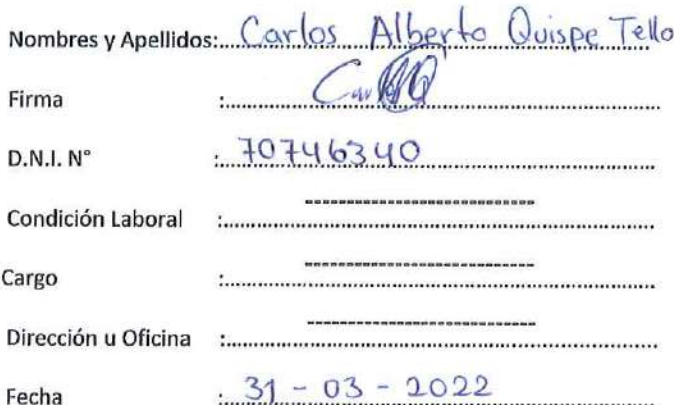 Nombres y Apellidos: Carlos Alberto Quispe Tello
Firma :
D.N.I. N° : 70746340
Condición Laboral : ----------------------------
Cargo : ----------------------------
Dirección u Oficina : ----------------------------
Fecha : 31 - 03 - 2022